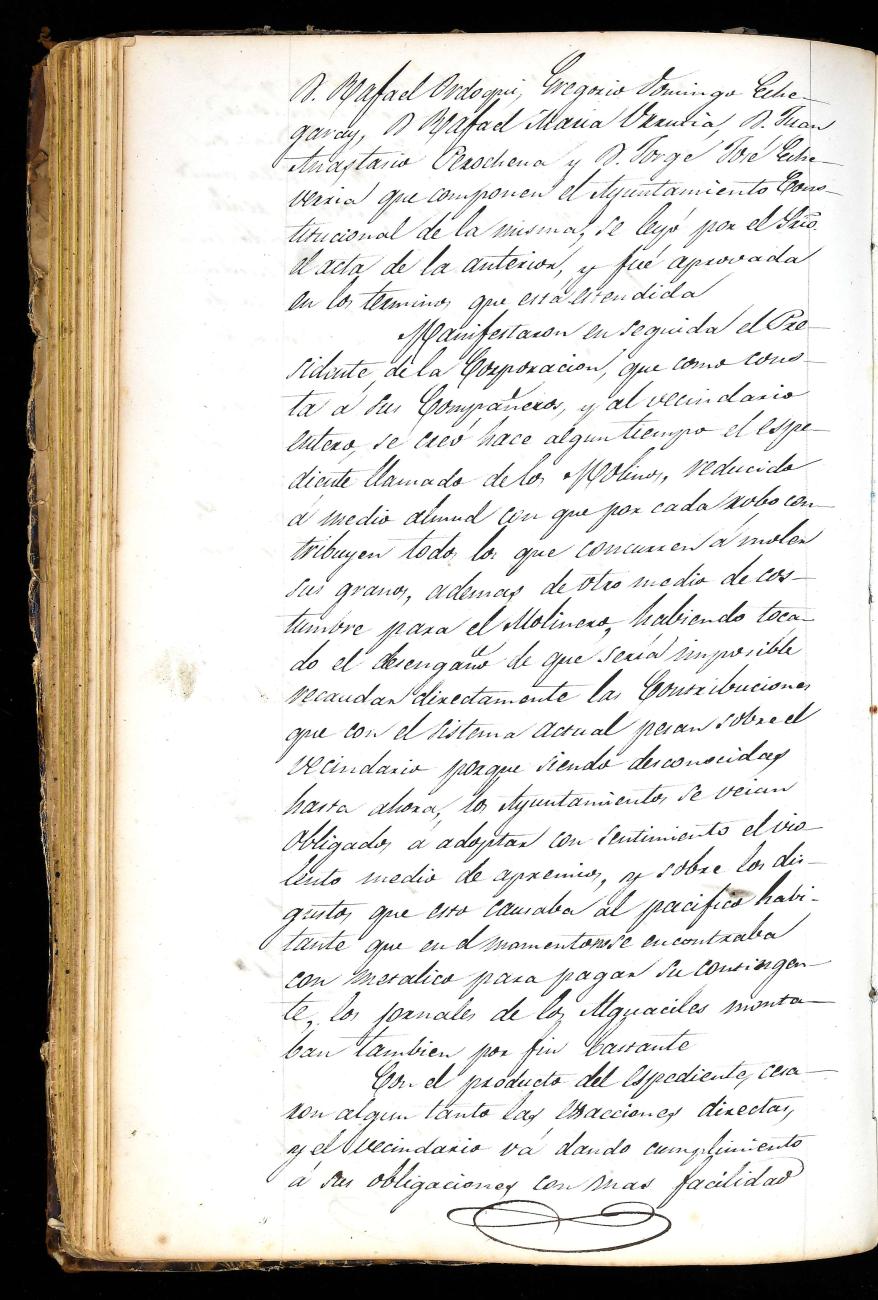 D. Rafael Ordoqui, Gregorio Domingo Eche-
garay, D Rafael Maria Urrutia, D. Juan
Anastasio Perochena y D. Jorge José Eche-
verria que componen el Ayuntamiento Cons-
titucional de la misma, se leyó por el Srio.
el acta de la anterior, y fué aprovada
en los terminos que está estendida
Manifestaron en seguida el Pre-
sidente, de la Corporacion, que como cons-
ta á sus Compañeros, y al vecindario
entero, se creó hace algun tiempo el espe-
diente llamado de los Molinos, reducido
á medio almud con que por cada robo con-
tribuyen todos los que concurren á moler
sus granos, ademas de otro medio de cos-
tumbre para el Molinero, habiendo toca-
do el desengaño de que sería imposible
recaudar directamente las Contribuciones
que con el sistema actual pesan sobre el
vecindario porque siendo desconocidas
hasta ahora, los Ayuntamientos se veian
obligados á adoptar con sentimiento el vio-
lento medio de apremios, y sobre los dis-
gustos que esto causaba al pacifico habi-
tante que en el momento no se encontraba
con metalico para pagar su contingen-
te, los jornales de los Alguaciles monta-
ban tambien por fin bastante
Con el producto del espediente, cesa-
ron algun tanto las exacciones directas,
y el vecindario vá dando cumplimiento
á sus obligaciones con mas facilidad